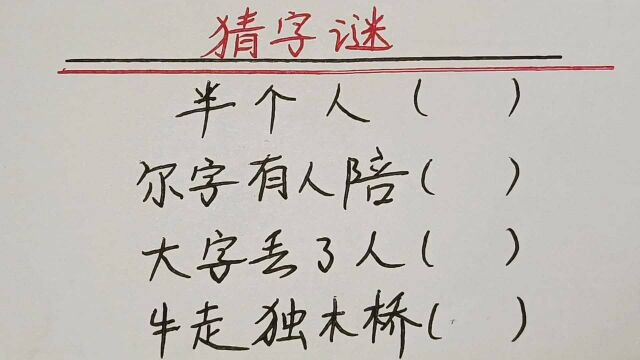 猜字谜
半个人( )
尔字有人陪( )
大字丢了人( )
牛走独木桥( )